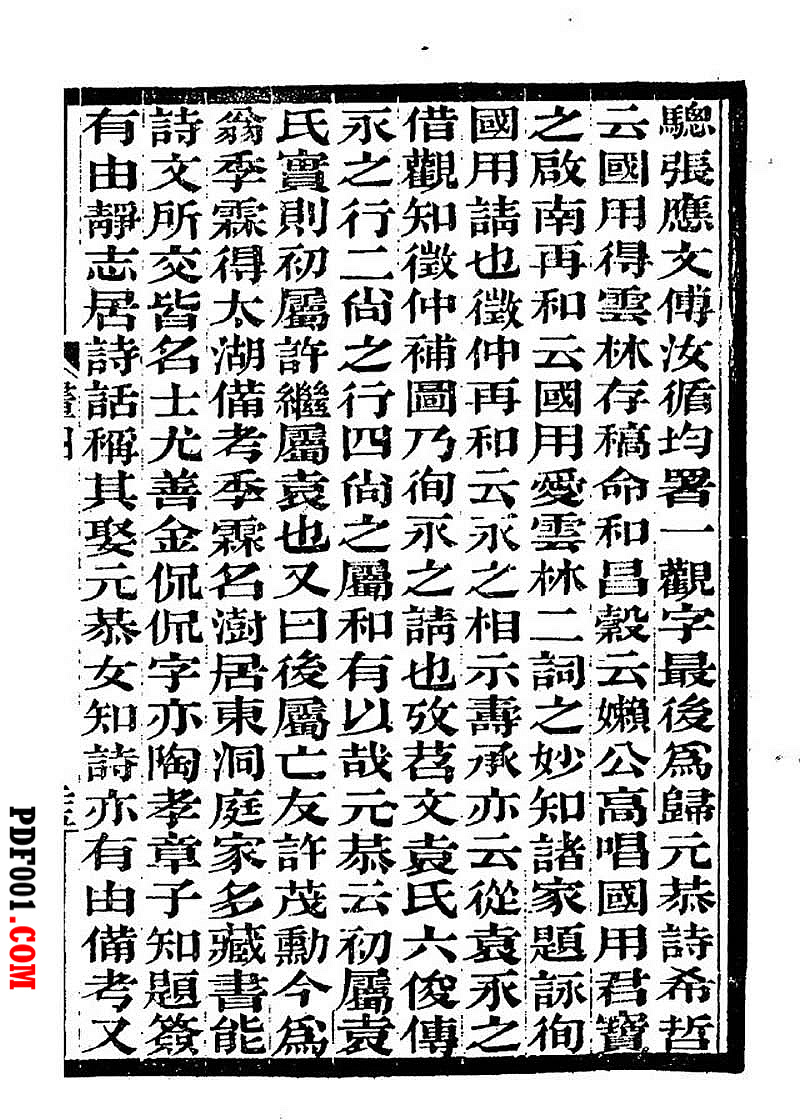 驄張應文傅汝循均署一觀字最後爲歸元恭詩希哲
云國用得雲林存稿命和昌穀云嬾公高唱國用君寶
之啟南再和云國用愛雲林二詞之妙知諸家題詠徇
國用請也徵仲再和云永之相示壽承亦云從袁永之
借觀知徵仲補圖乃徇永之請也攷茗文袁氏六俊傳
永之行二尙之行四尙之屬和有以哉元恭云初屬袁
氏實則初屬許繼屬袁也又曰後屬亡友許茂勳今爲
翁季霖得太湖備考季霖名澍居東洞庭家多藏書能
詩文所交皆名士尤善金侃侃字亦陶孝章子知題簽
有由靜志居詩話稱其娶元恭女知詩亦有由備考又
PDF001.COM